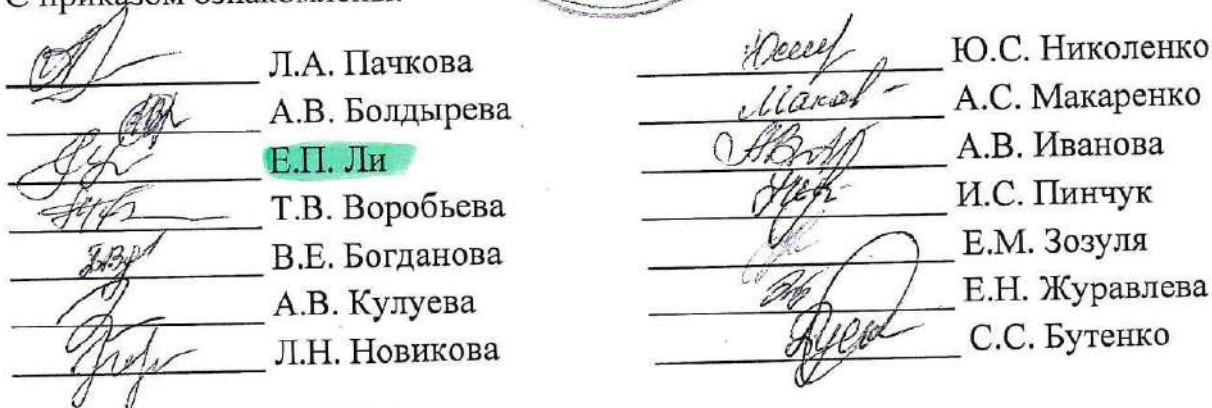 С приказом ознакомлены:
Л.А. Пачкова
А.В. Болдырева
Е.П. Ли
Т.В. Воробьева
В.Е. Богданова
А.В. Кулуева
Л.Н. Новикова
Ю.С. Николенко
А.С. Макаренко
А.В. Иванова
И.С. Пинчук
Е.М. Зозуля
Е.Н. Журавлева
С.С. Бутенко